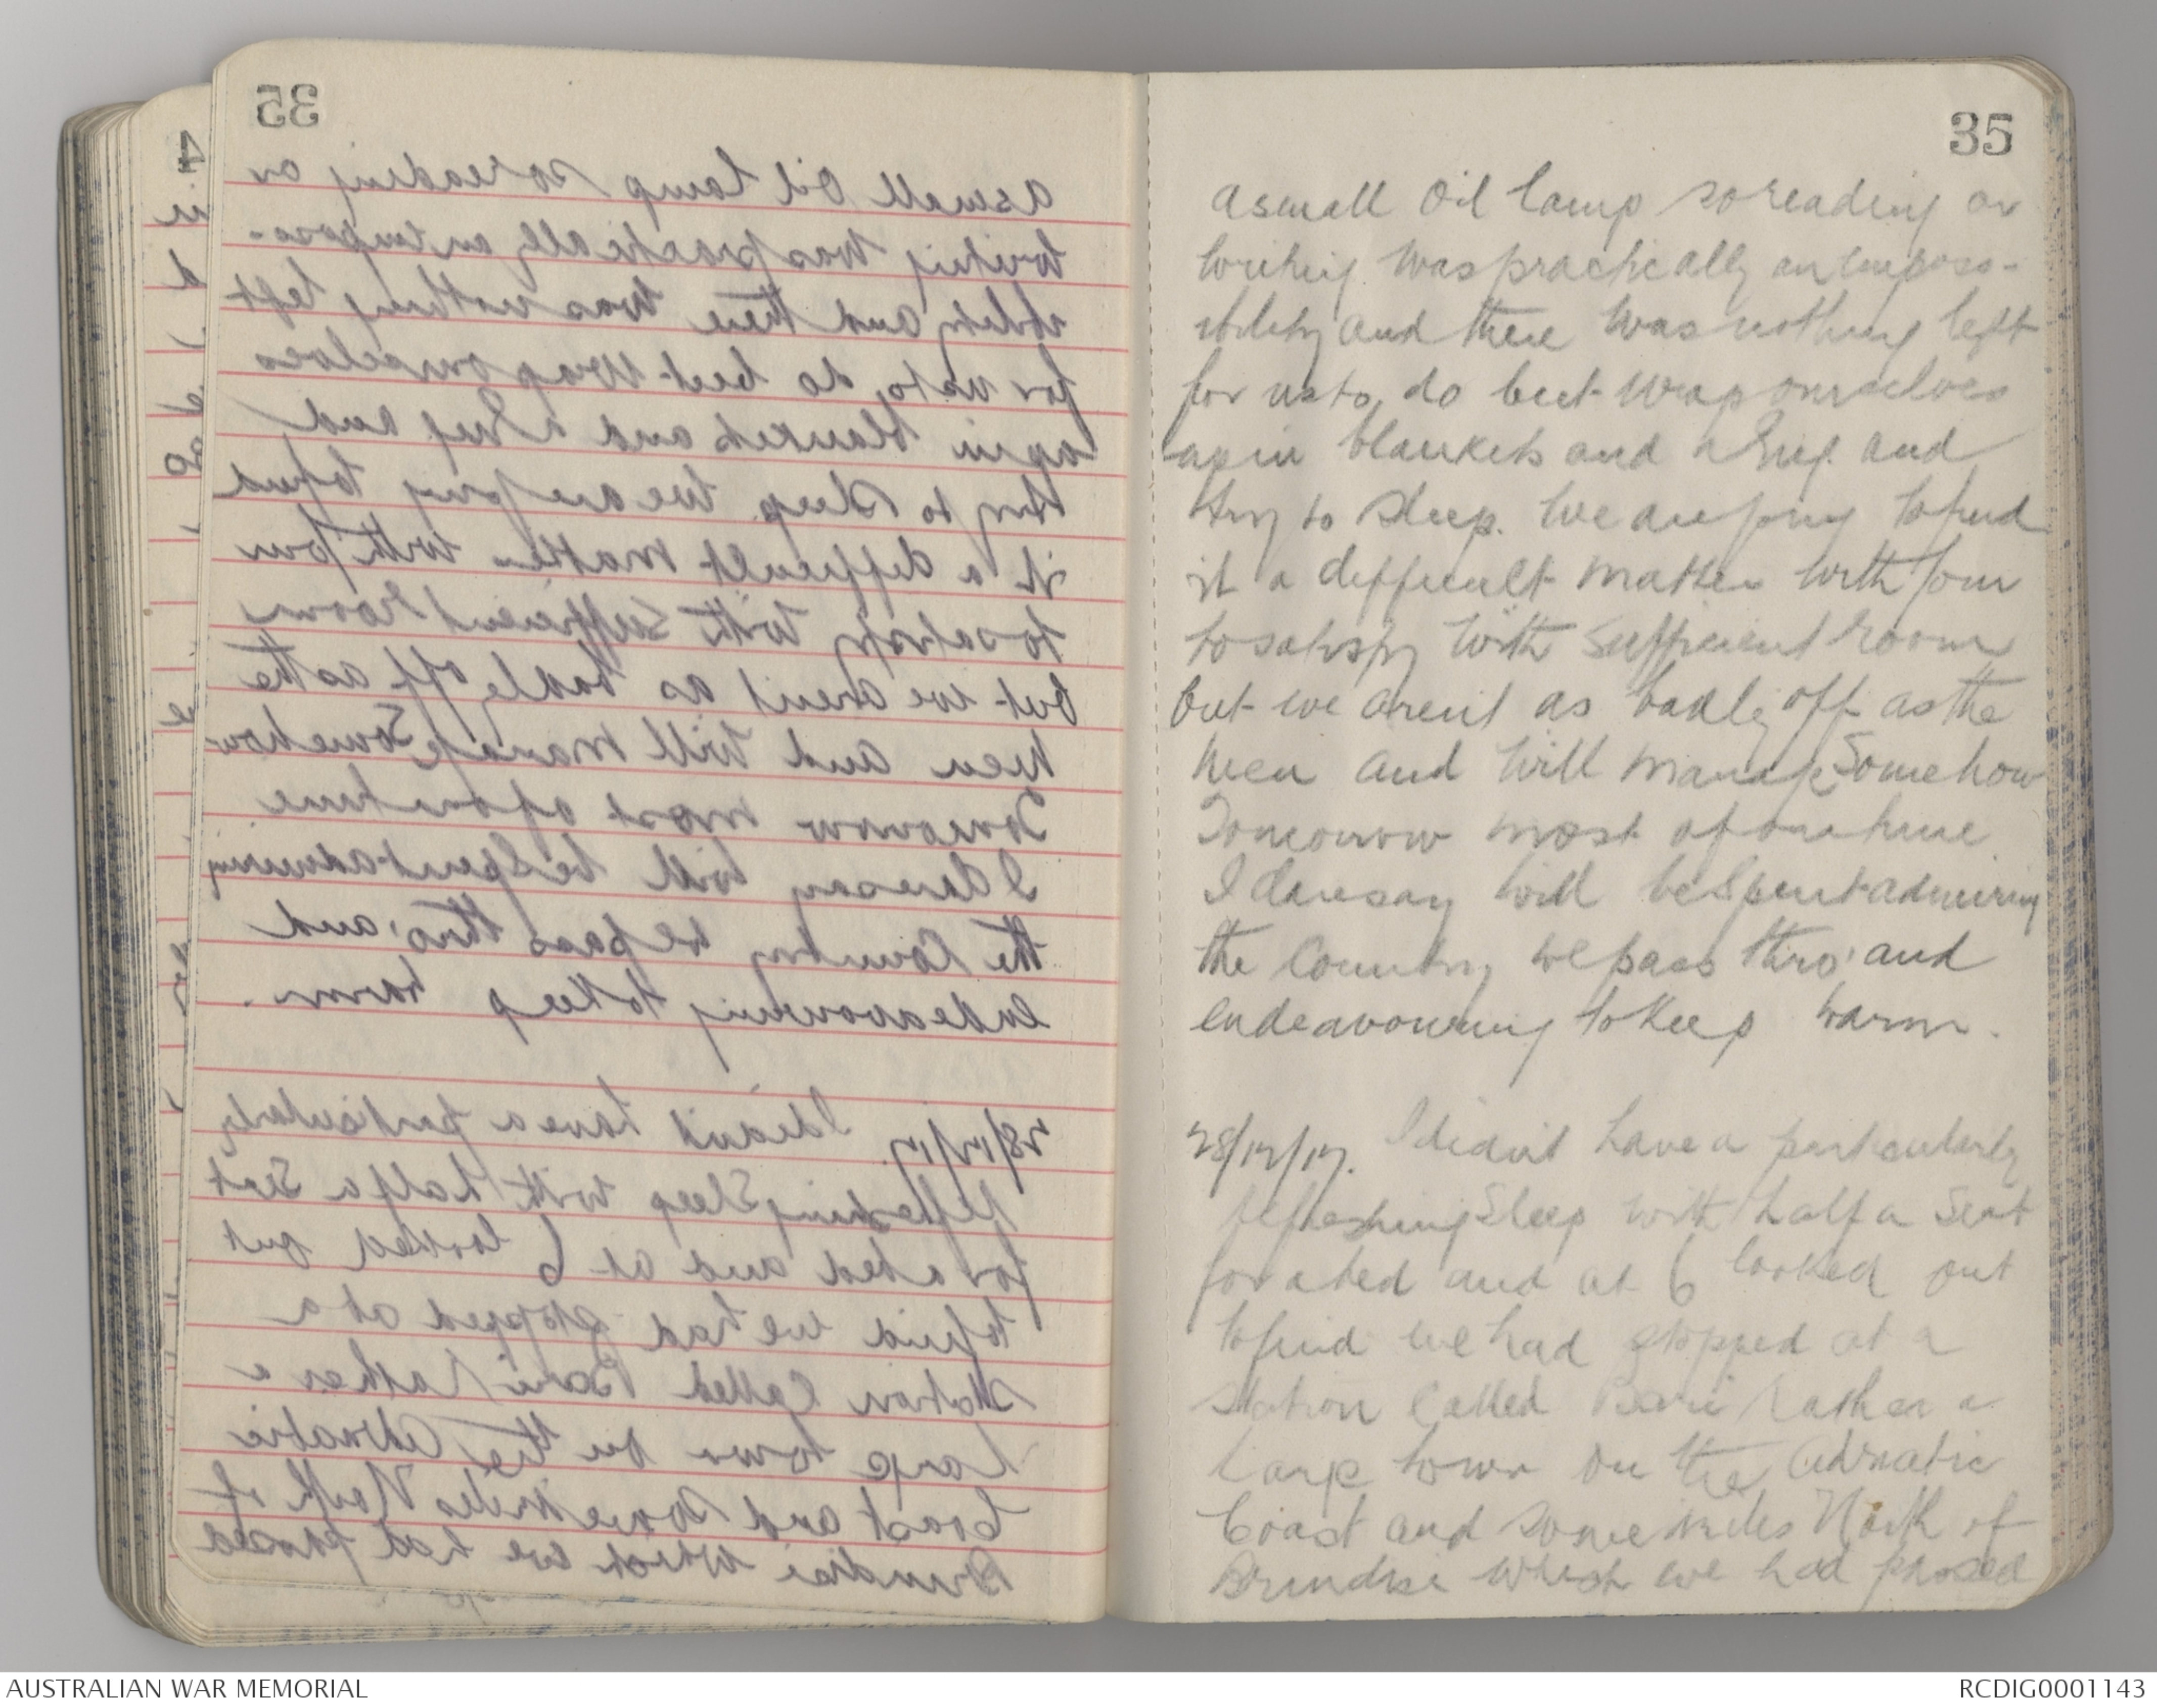 35
a small oil lamp so reading or
writing was practically an imposs-
ibility and there was nothing left
for us to do but wrap ourselves
up in blankets and a rug and
try to sleep. We are going to find
it a difficult matter with four
to satisfy with sufficient room
but we aren't as badly off as the
men and will manage somehow
Tomorrow most of our time
I daresay will be spent admiring
the Country we pass thro' and
endeavouring to keep warm.
28/12/17. I didn't have a particularly
refreshing sleep with half a seat
for a bed and at 6 looked out
to find we had stopped at a
station called Bari rather a
large town on the Adriatic
Coast and some miles North of
Brindisi which we had passed
AUSTRALIAN WAR MEMORIAL
RCDIG0001143